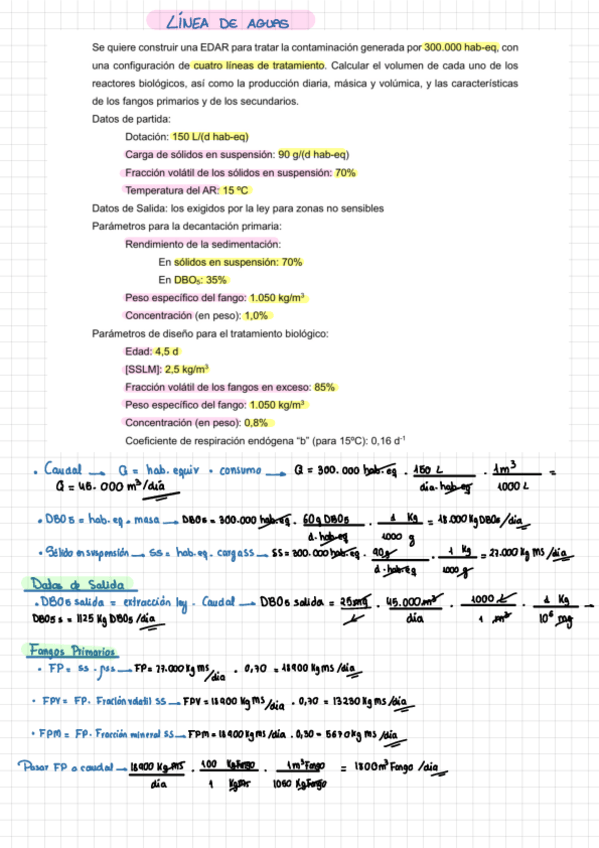 LÍNEA DE AGUAS
Se quiere construir una EDAR para tratar la contaminación generada por 300.000 hab-eq, con
una configuración de cuatro líneas de tratamiento. Calcular el volumen de cada uno de los
reactores biológicos, así como la producción diaria, másica y volúmica, y las características
de los fangos primarios y de los secundarios.
Datos de partida:
Dotación: 150 L/(d hab-eq)
Carga de sólidos en suspensión: 90 g/(d hab-eq)
Fracción volátil de los sólidos en suspensión: 70%
Temperatura del AR: 15 ºC
Datos de Salida: los exigidos por la ley para zonas no sensibles
Parámetros para la decantación primaria:
Rendimiento de la sedimentación:
En sólidos en suspensión: 70%
En DBO₅: 35%
Peso específico del fango: 1.050 kg/m³
Concentración (en peso): 1,0%
Parámetros de diseño para el tratamiento biológico:
Edad: 4,5 d
[SSLM]: 2,5 kg/m³
Fracción volátil de los fangos en exceso: 85%
Peso específico del fango: 1.050 kg/m³
Concentración (en peso): 0,8%
Coeficiente de respiración endógena “b” (para 15ºC): 0,16 d⁻¹
• Caudal → Q = hab. equiv • consumo → Q = 300.000 hab-eq · 150 L / dia·hab-eq · 1m³ / 1000 L =
Q = 45.000 m³/día
• DBO5 = hab. eq. masa → DBO5 = 300.000 hab-eq · 60g DBO5 / d·hab-eq · 1 Kg / 1000 g = 18.000 Kg DBO5/día
• Sólido en suspensión → SS = hab-eq. carga ss → SS = 300.000 hab-eq · 90g / d·hab-eq · 1 Kg / 1000 g = 27.000 Kg MS/día
Datos de Salida
• DBO5 salida = extracción ley · Caudal → DBO5 salida = 25mg / L · 45.000 m³ / día · 1000 L / 1 m³ · 1 Kg / 10⁶ mg →
DBO5 s = 1125 Kg DBO5/día
Fangos Primarios
• FP = SS · ρss → FP = 27.000 Kg MS/día · 0,70 = 18900 Kg MS/día
• FPV = FP. Fración volatil SS → FPV = 18900 Kg MS/día · 0,70 = 13230 Kg MS/día
• FPM = FP. Fracción mineral SS → FPM = 18900 Kg MS/día · 0,30 = 5670 Kg MS/día
Pasar FP a caudal → 18900 Kg MS / día · 100 Kg Fango / 1 Kg MS · 1m³ Fango / 1050 Kg Fango = 1800m³ Fango /día